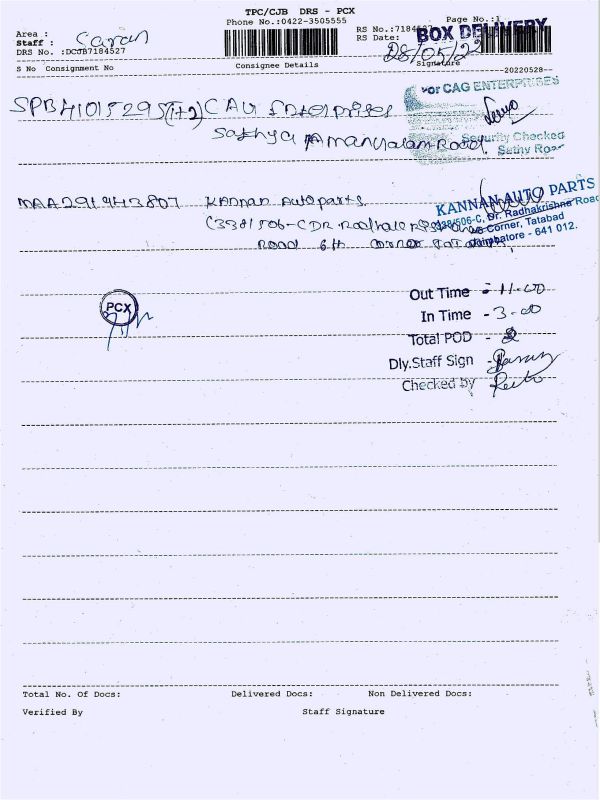 TPC/CJB DRS - PCX
Phone No.:0422-3505555
Page No.:1
Area :
Staff : Saran
DRS No. :DCJB7184527
RS No.:7184
RS Date:
BOX DELIVERY
28/05/22
S No Consignment No
Consignee Details
Signature
20220528
SPB41015295(1+2) CAG Enterprises
Sathya Road
For CAG ENTERPRISES
Security Checked
Sathy Road
MAA291943807 Kannan Autoparts
(338/506-C DR.
Road 6th Corner
KANNAN AUTO PARTS
338/506-C, Dr. Radhakrishna Road
Corner, Tatabad
Coimbatore - 641 012.
PCX
Out Time - 11-00
In Time - 3-00
Total POD - 2
Dly.Staff Sign - Saran
Checked by
Total No. Of Docs:
Delivered Docs:
Non Delivered Docs:
Verified By
Staff Signature